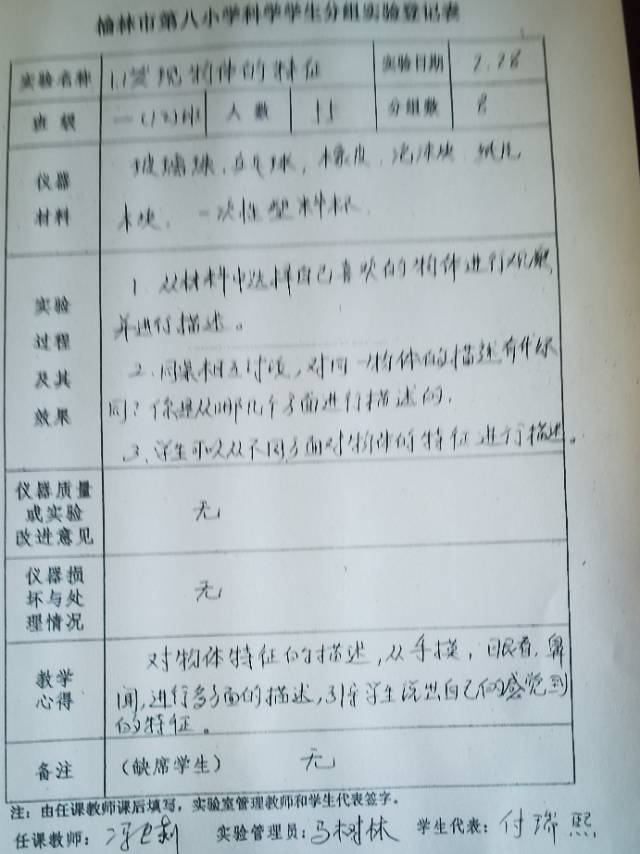 榆林市第八小学科学学生分组实验登记表
实验名称 1.1发现物体的特征 实验日期 2.28
班级 一(12)班 人数 55 分组数 8
仪器材料 玻璃珠, 乒乓球, 橡皮, 泡沫块
木块, 一次性塑料杯.
实验过程及其效果 1. 从材料中选择自己喜欢的物体进行观察,
并进行描述。
2. 同桌相互讨论, 对同一物体的描述有什么不
同? 你是从哪几个方面进行描述的.
3. 学生可以从不同方面对物体的特征进行描述。
仪器质量或实验改进意见 无
仪器损坏与处理情况 无
教学心得 对物体特征的描述, 从手摸, 眼看, 鼻
闻, 进行多方面的描述, 引导学生说出自己感觉到
的特征。
备注 (缺席学生) 无
注: 由任课教师课后填写, 实验室管理教师和学生代表签字。
任课教师: 实验管理员: 马树林 学生代表: 付瑞熙